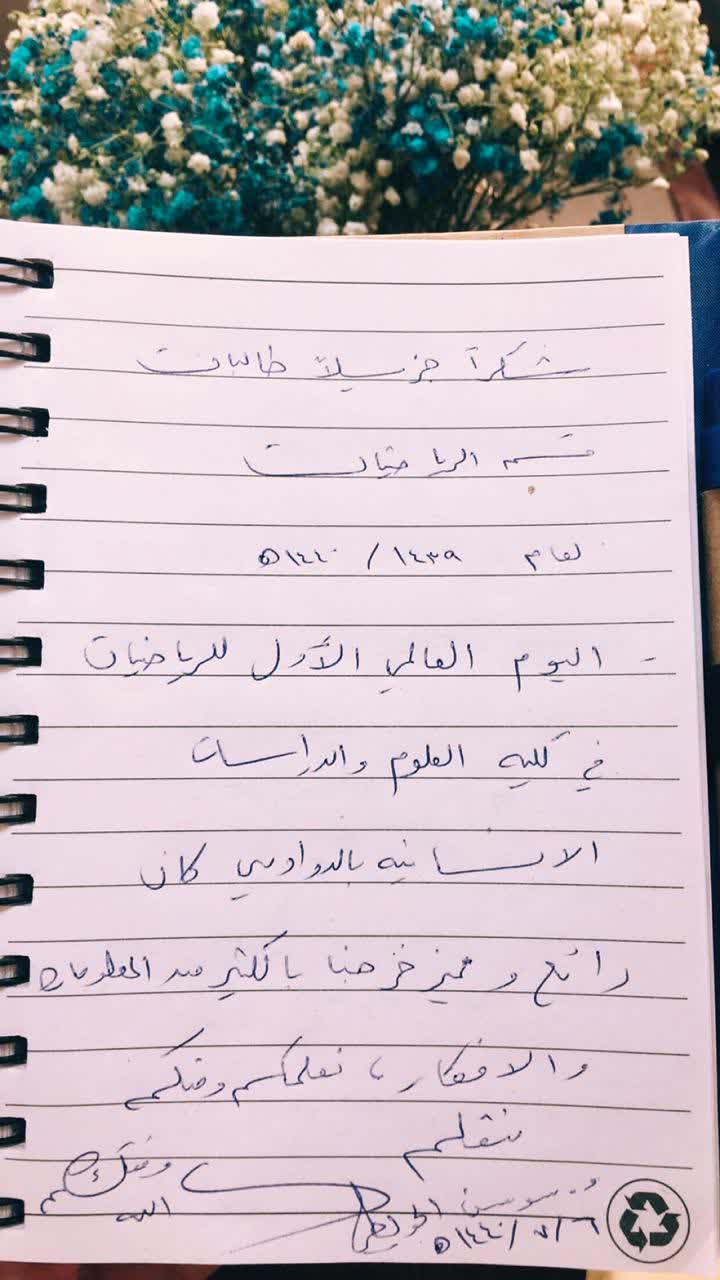 شكراً جزيلاً طالبات
قسم الرياضيات
لعام ١٤٣٩ / ١٤٤٠ه
- اليوم العالمي الأول للرياضيات
في كليه العلوم والدراسات
الانسانيه بالدوادمي كان
رائع ومميز خرجنا بالكثير من المعلومات
والافكار، نعلمكم ومنكم
نتعلم
وفقكم الله
سوسن
١٤٤٠/٧/٦ه